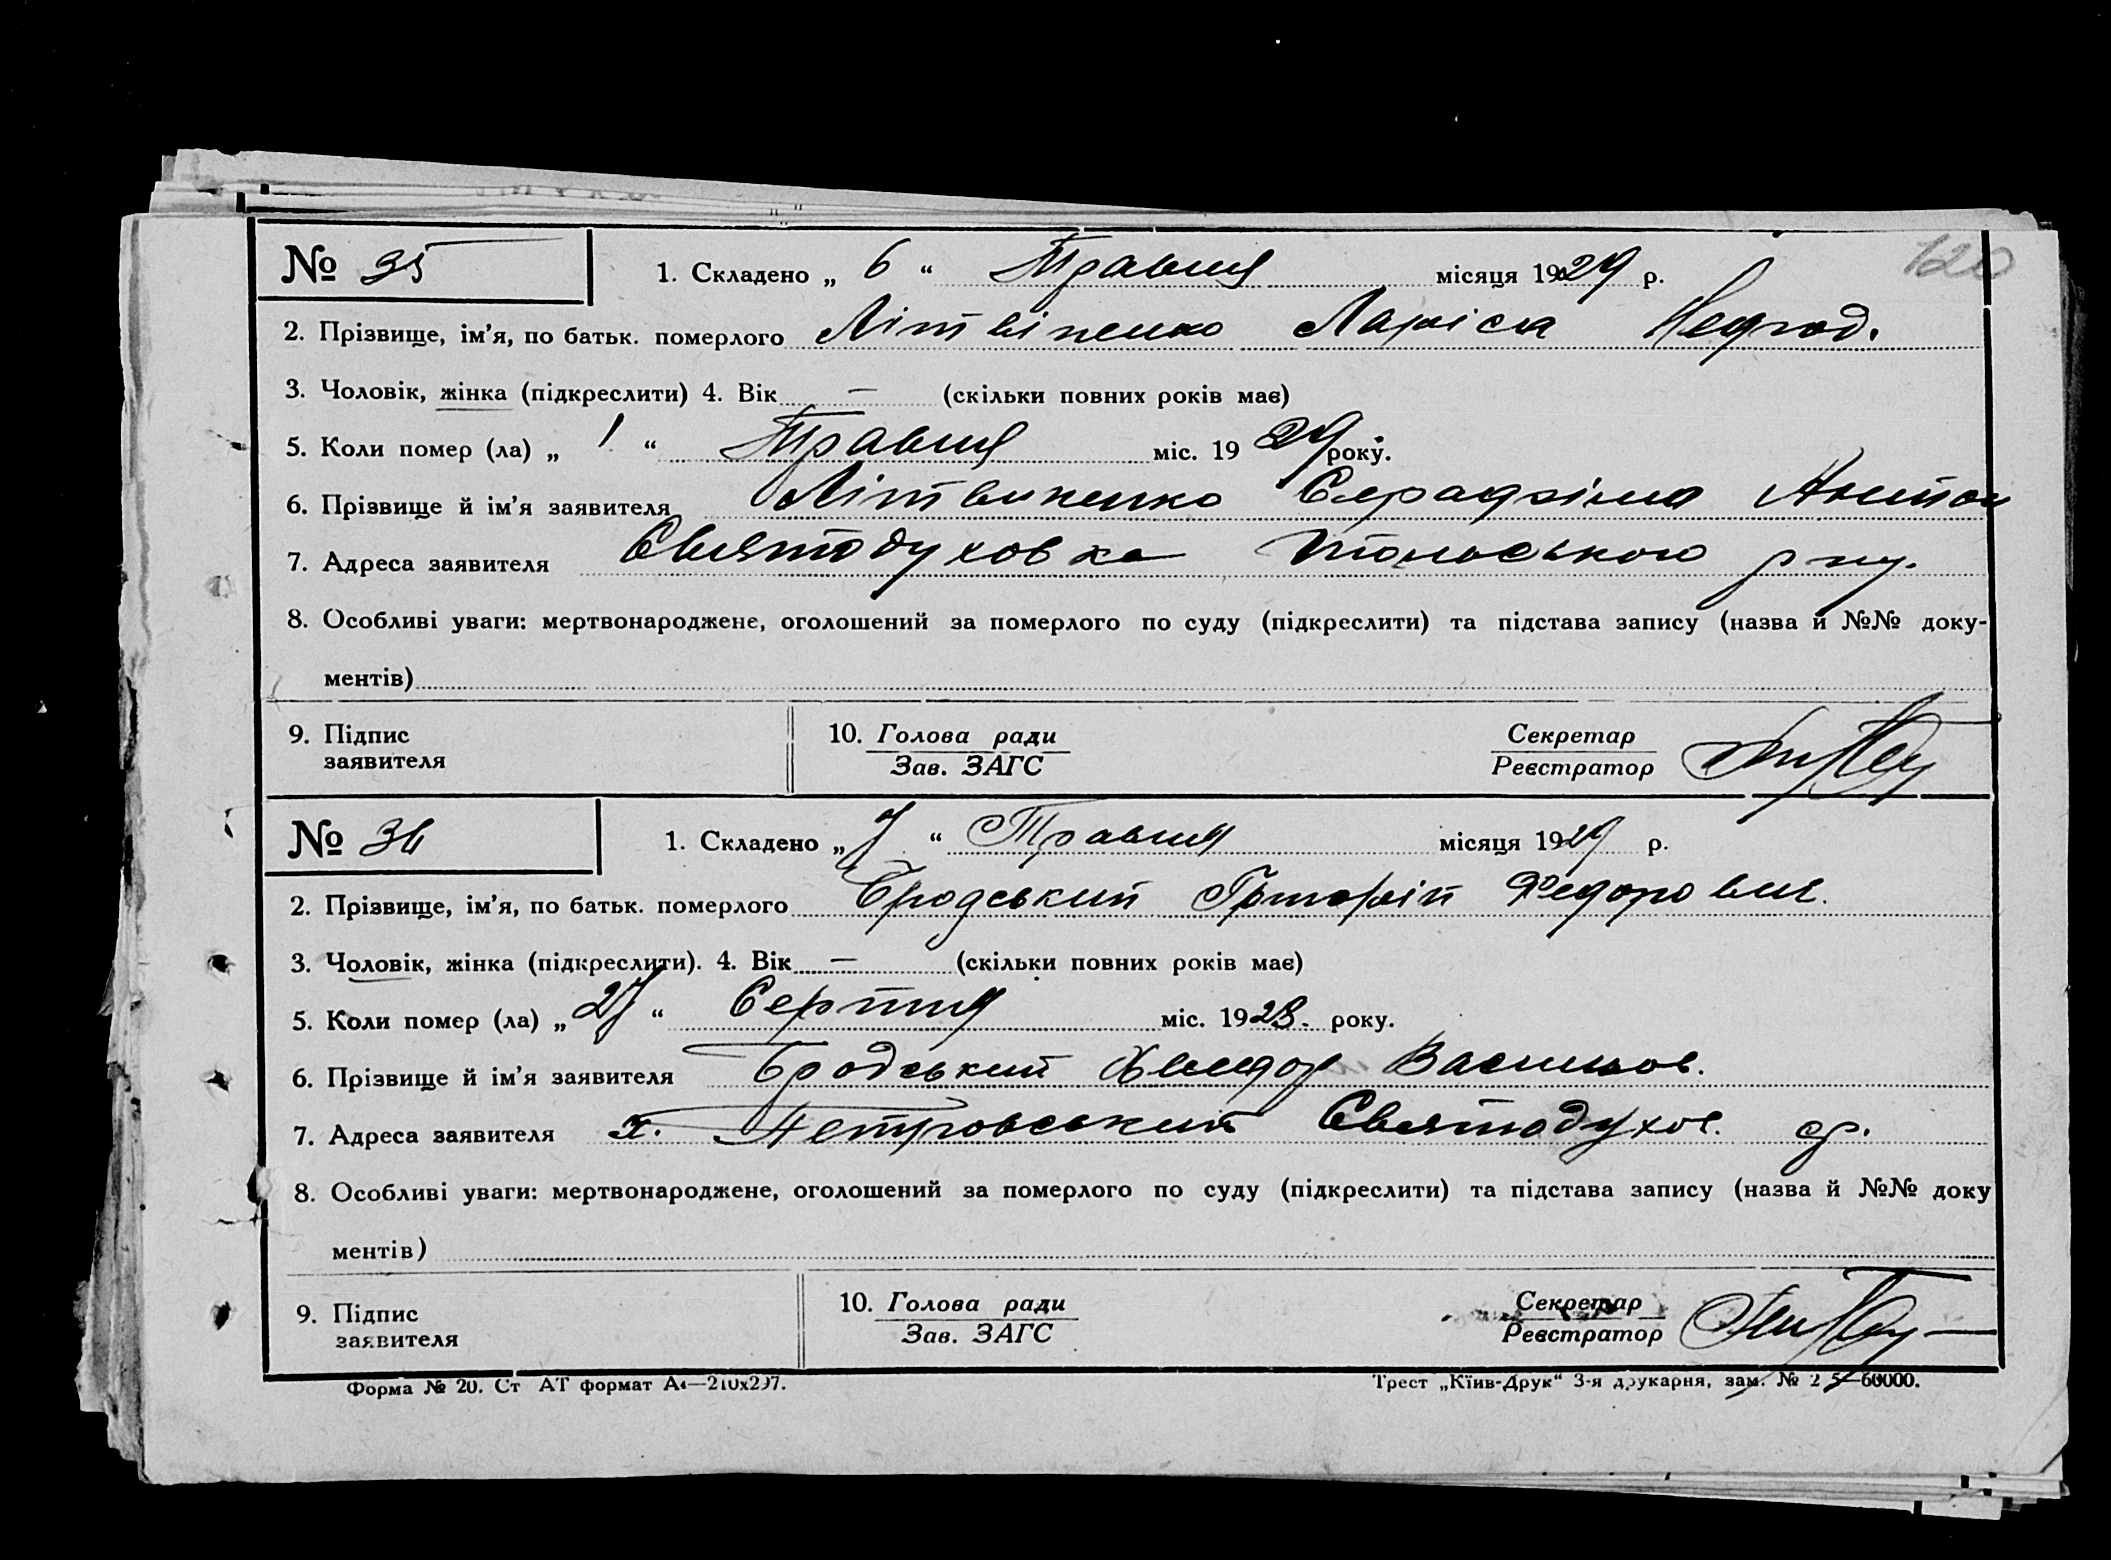 120
№ 35 1. Складено „ 6 “ Травня місяця 1929 р.
2. Прізвище, ім’я, по батьк. померлого Літвіненко Лариса Недгод.
3. Чоловік, жінка (підкреслити) 4. Вік — (скільки повних років має)
5. Коли помер (ла) „ 1 “ Травня міс. 19 29 року.
6. Прізвище й ім’я заявителя Літвиненко Серафіма Антон
7. Адреса заявителя Святодуховка р-ну.
8. Особливі уваги: мертвонароджене, оголошений за померлого по суду (підкреслити) та підстава запису (назва й №№ доку-
ментів)
9. Підпис заявителя 10. Голова ради Секретар
Зав. ЗАГС Реєстратор
№ 36 1. Складено „ 7 “ Травня місяця 1929 р.
2. Прізвище, ім’я, по батьк. померлого Бродський Григорій Федорович.
3. Чоловік, жінка (підкреслити). 4. Вік — (скільки повних років має)
5. Коли помер (ла) „ 27 “ Серпня міс. 1928. року.
6. Прізвище й ім’я заявителя Бродський Хведор Васильов.
7. Адреса заявителя х. Петровський Святодухов. ср.
8. Особливі уваги: мертвонароджене, оголошений за померлого по суду (підкреслити) та підстава запису (назва й №№ доку
ментів)
9. Підпис заявителя 10. Голова ради Секретар
Зав. ЗАГС Реєстратор
Форма № 20. Ст АТ формат А4—210х297. Трест „Київ-Друк“ 3-я друкарня, зам. № 60000.